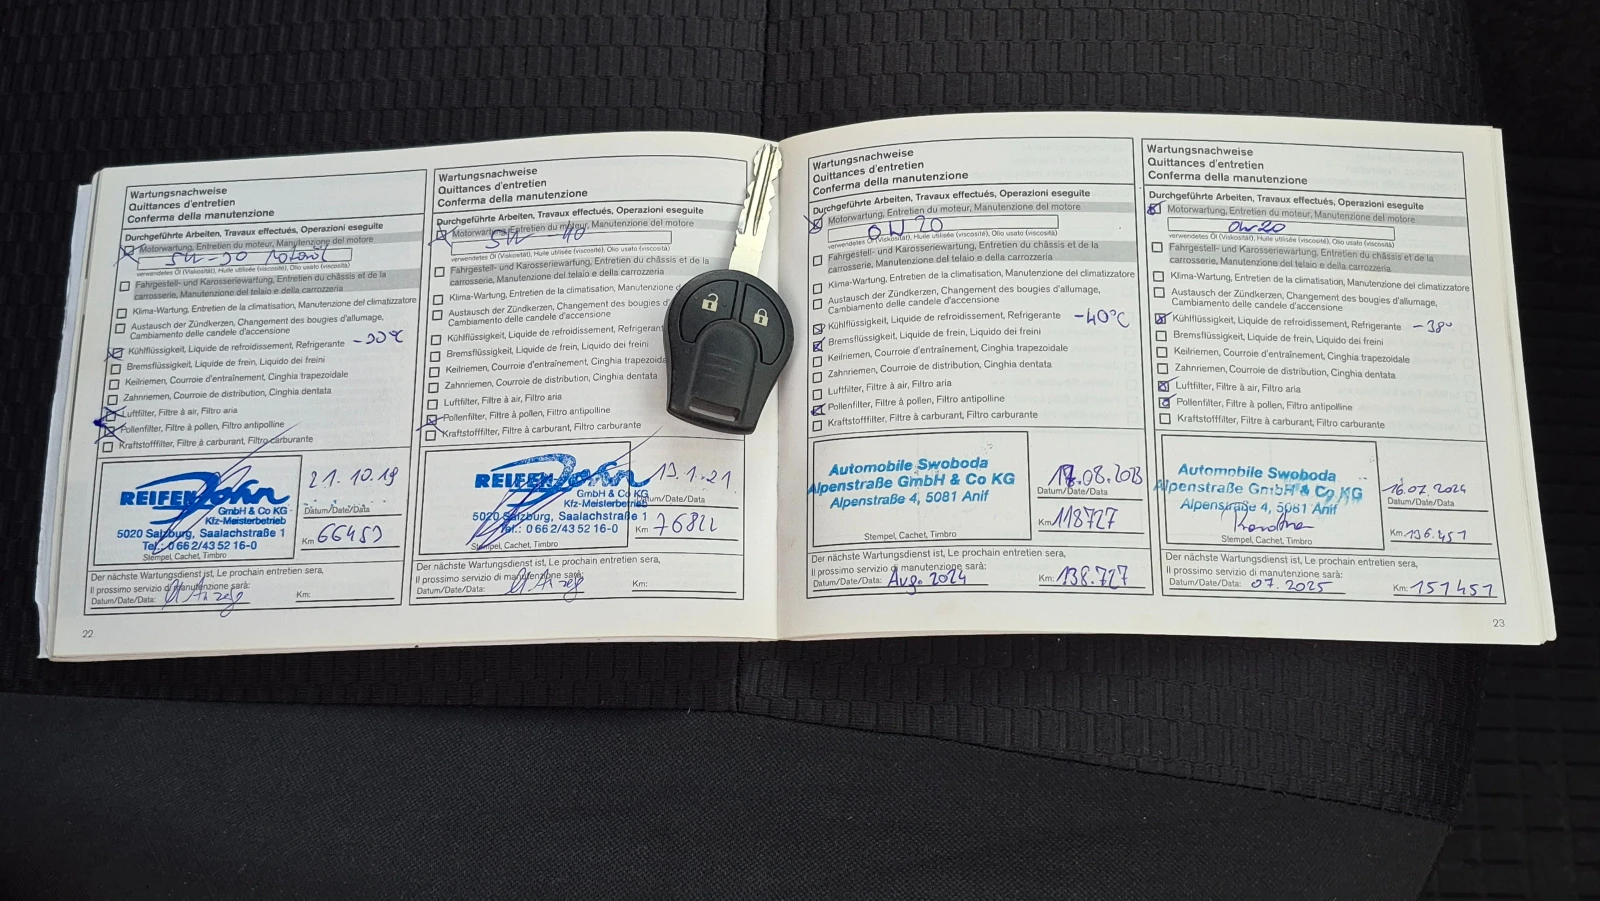 Wartungsnachweise
Quittances d'entretien
Conferma della manutenzione
Durchgeführte Arbeiten, Travaux effectués, Operazioni eseguite
Motorwartung, Entretien du moteur, Manutenzione del motore
5W-30
verwendetes Öl (Viskosität), Huile utilisée (viscosité), Olio usato (viscosità)
Fahrgestell- und Karosseriewartung, Entretien du châssis et de la
carrosserie, Manutenzione del telaio e della carrozzeria
Klima-Wartung, Entretien de la climatisation, Manutenzione del climatizzatore
Austausch der Zündkerzen, Changement des bougies d'allumage,
Cambiamento delle candele d'accensione
Kühlflüssigkeit, Liquide de refroidissement, Refrigerante -30°C
Bremsflüssigkeit, Liquide de frein, Liquido dei freini
Keilriemen, Courroie d'entraînement, Cinghia trapezoidale
Zahnriemen, Courroie de distribution, Cinghia dentata
Luftfilter, Filtre à air, Filtro aria
Pollenfilter, Filtre à pollen, Filtro antipolline
Kraftstofffilter, Filtre à carburant, Filtro carburante
REIFEN John
GmbH & Co KG
Kfz-Meisterbetrieb
5020 Salzburg, Saalachstraße 1
Tel.: 0 66 2/43 52 16-0
Stempel, Cachet, Timbro
21.10.19
Datum/Date/Data
Km 66453
Der nächste Wartungsdienst ist, Le prochain entretien sera,
Il prossimo servizio di manutenzione sarà:
Datum/Date/Data:
Km:
22
Wartungsnachweise
Quittances d'entretien
Conferma della manutenzione
Durchgeführte Arbeiten, Travaux effectués, Operazioni eseguite
Motorwartung, Entretien du moteur, Manutenzione del motore
5W-40
verwendetes Öl (Viskosität), Huile utilisée (viscosité), Olio usato (viscosità)
Fahrgestell- und Karosseriewartung, Entretien du châssis et de la
carrosserie, Manutenzione del telaio e della carrozzeria
Klima-Wartung, Entretien de la climatisation, Manutenzione d
Austausch der Zündkerzen, Changement des bougies d'
Cambiamento delle candele d'accensione
Kühlflüssigkeit, Liquide de refroidissement, Refrigerant
Bremsflüssigkeit, Liquide de frein, Liquido dei freini
Keilriemen, Courroie d'entraînement, Cinghia trapezoida
Zahnriemen, Courroie de distribution, Cinghia dentata
Luftfilter, Filtre à air, Filtro aria
Pollenfilter, Filtre à pollen, Filtro antipolline
Kraftstofffilter, Filtre à carburant, Filtro carburante
REIFEN John
GmbH & Co KG
Kfz-Meisterbetrieb
5020 Salzburg, Saalachstraße 1
Tel.: 0 66 2/43 52 16-0
Stempel, Cachet, Timbro
19.1.21
Datum/Date/Data
Km 76822
Der nächste Wartungsdienst ist, Le prochain entretien sera,
Il prossimo servizio di manutenzione sarà:
Datum/Date/Data:
Km:
Wartungsnachweise
Quittances d'entretien
Conferma della manutenzione
Durchgeführte Arbeiten, Travaux effectués, Operazioni eseguite
Motorwartung, Entretien du moteur, Manutenzione del motore
0W20
verwendetes Öl (Viskosität), Huile utilisée (viscosité), Olio usato (viscosità)
Fahrgestell- und Karosseriewartung, Entretien du châssis et de la
carrosserie, Manutenzione del telaio e della carrozzeria
Klima-Wartung, Entretien de la climatisation, Manutenzione del climatizzatore
Austausch der Zündkerzen, Changement des bougies d'allumage,
Cambiamento delle candele d'accensione
Kühlflüssigkeit, Liquide de refroidissement, Refrigerante -40°C
Bremsflüssigkeit, Liquide de frein, Liquido dei freini
Keilriemen, Courroie d'entraînement, Cinghia trapezoidale
Zahnriemen, Courroie de distribution, Cinghia dentata
Luftfilter, Filtre à air, Filtro aria
Pollenfilter, Filtre à pollen, Filtro antipolline
Kraftstofffilter, Filtre à carburant, Filtro carburante
Automobile Swoboda
Alpenstraße GmbH & Co KG
Alpenstraße 4, 5081 Anif
Stempel, Cachet, Timbro
.08.2023
Datum/Date/Data
Km 118727
Der nächste Wartungsdienst ist, Le prochain entretien sera,
Il prossimo servizio di manutenzione sarà:
Datum/Date/Data: Aug. 2024
Km: 138.727
Wartungsnachweise
Quittances d'entretien
Conferma della manutenzione
Durchgeführte Arbeiten, Travaux effectués, Operazioni eseguite
Motorwartung, Entretien du moteur, Manutenzione del motore
0W20
verwendetes Öl (Viskosität), Huile utilisée (viscosité), Olio usato (viscosità)
Fahrgestell- und Karosseriewartung, Entretien du châssis et de la
carrosserie, Manutenzione del telaio e della carrozzeria
Klima-Wartung, Entretien de la climatisation, Manutenzione del climatizzatore
Austausch der Zündkerzen, Changement des bougies d'allumage,
Cambiamento delle candele d'accensione
Kühlflüssigkeit, Liquide de refroidissement, Refrigerante -38°
Bremsflüssigkeit, Liquide de frein, Liquido dei freini
Keilriemen, Courroie d'entraînement, Cinghia trapezoidale
Zahnriemen, Courroie de distribution, Cinghia dentata
Luftfilter, Filtre à air, Filtro aria
Pollenfilter, Filtre à pollen, Filtro antipolline
Kraftstofffilter, Filtre à carburant, Filtro carburante
Automobile Swoboda
Alpenstraße GmbH & Co KG
Alpenstraße 4, 5081 Anif
Stempel, Cachet, Timbro
16.07.2024
Datum/Date/Data
Km 136.451
Der nächste Wartungsdienst ist, Le prochain entretien sera,
Il prossimo servizio di manutenzione sarà:
Datum/Date/Data: 07.2025
Km: 151451
23